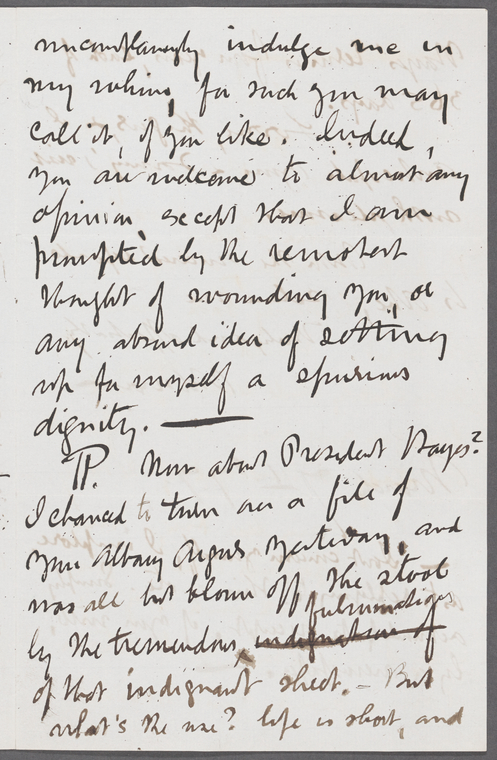 uncomplainingly indulge me in
my whim, for such you may
call it, if you like. Indeed,
you are welcome to almost any
opinion except that I am
prompted by the remotest
thought of wounding you, or
any absurd idea of setting
up for myself a spurious
dignity. —
¶. Now about President Hayes?
I chanced to turn over a file of
your Albany Argus yesterday, and
was all but blown off the stool
fulminations
by the tremendous indignation of
of that indignant sheet. — But
what's the use? Life is short, and